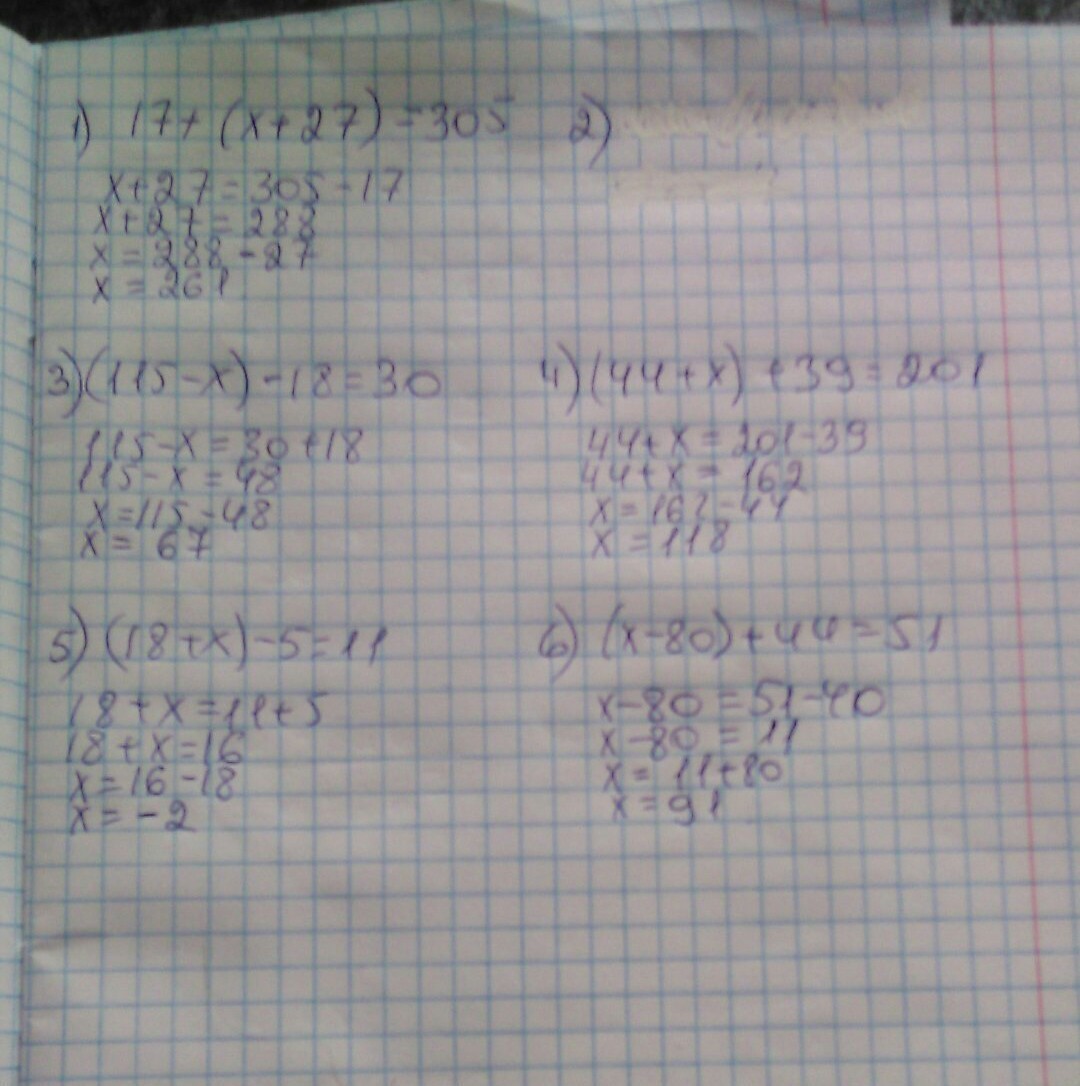 1) 17+(x+27)=305
x+27=305-17
x+27=288
x=288-27
x=261
2)
3)(115-x)-18=30
115-x=30+18
115-x=48
x=115-48
x=67
4)(44+x)+39=201
44+x=201-39
44+x=162
x=162-44
x=118
5)(18+x)-5=11
18+x=11+5
18+x=16
x=16-18
x=-2
6)(x-80)+44=51
x-80=51-40
x-80=11
x=11+80
x=91